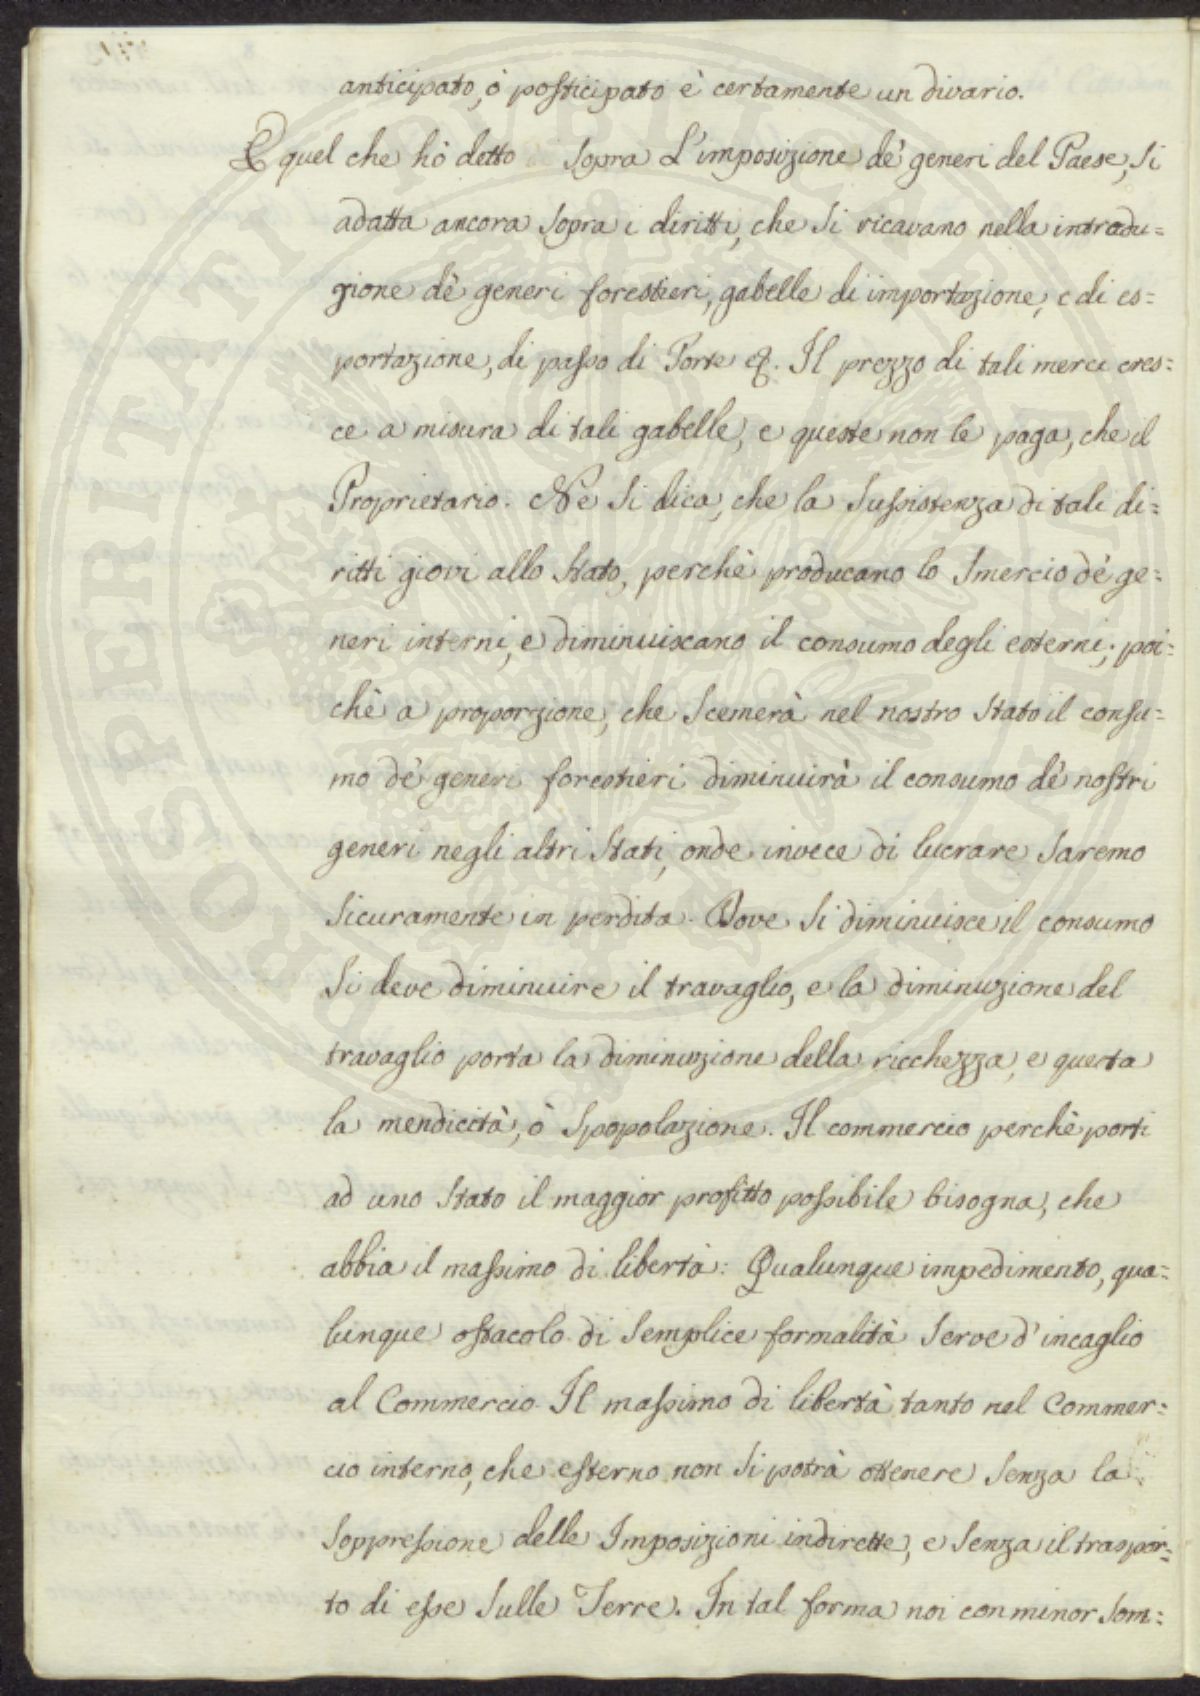 anticipato, ò posticipato è certamente un divario.
E quel che hò detto sopra L'imposizione dè generi del Paese, si
adatta ancora sopra i diritti, che si ricavano nella introdu=
zione dè generi forestieri, gabelle di importazione, e di es=
portazione, di passo di Porte &. Il prezzo di tali merci cres=
ce a misura di tali gabelle, e queste non le paga, che il
Proprietario. Nè si dica, che la sussistenza di tali di=
ritti giovi allo Stato, perchè producano lo smercio dè ge=
neri interni, e diminuiscano il consumo degli esterni; poi=
chè a proporzione, che scemerà nel nostro Stato il consu=
mo dè generi forestieri diminuirà il consumo dè nostri
generi negli altri Stati, onde invece di lucrare saremo
sicuramente in perdita. Dove si diminuisce il consumo
si deve diminuire il travaglio, e la diminuzione del
travaglio porta la diminuzione della ricchezza, e questa
la mendicità, ò spopolazione. Il commercio perchè porti
ad uno Stato il maggior profitto possibile bisogna, che
abbia il massimo di libertà: Qualunque impedimento, qua=
lunque ostacolo di semplice formalità serve d'incaglio
al Commercio. Il massimo di libertà tanto nel Commer=
cio interno, che esterno non si potrà ottenere senza la
soppressione delle Imposizioni indirette, e senza il traspor=
to di esse sulle Terre. In tal forma noi con minor som=
PROSPERITATI PUBLICAE